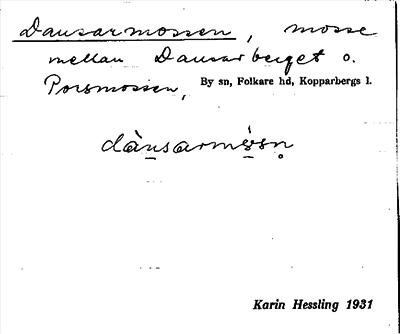 Dansarmossen, mosse
mellan Dansarberget o.
Porsmossen, By sn, Folkare hd, Kopparbergs l.
dànsarmósn̥
Karin Hessling 1931